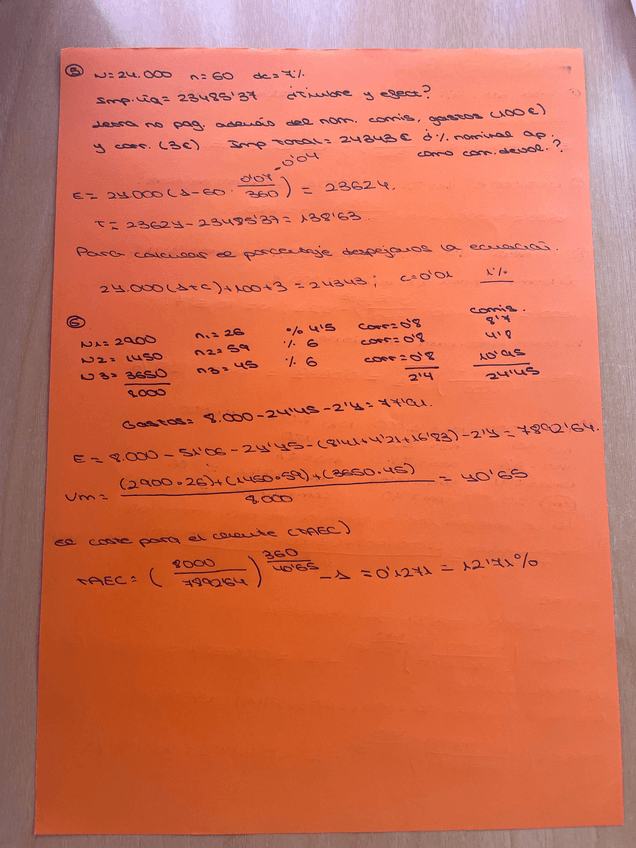 ⑤ N=24.000 n=60 dc=7%
Imp. líq= 23485'37 ¿Timbre y efect?
Letra no pag. además del nom. comis, gastos (100€)
y corr. (3€) Imp Total = 24343€ ¿% nominal ap.
como com. devol.?
-0'04
E= 24.000(1-60· 0'07/360) = 23624.
T= 23624-23485'37= 138'63
Para calcular el porcentaje despejamos la ecuación.
24.000(1+c)+100+3 = 24343; c=0'01 1%
⑥ comis.
N1= 2900 n1= 26 % 4'5 corr=0'8 8'7
N2= 1450 n2= 59 % 6 corr=0'8 4'8
N3= 3650 n3= 45 % 6 corr=0'8 10'95
8000 2'4 24'45
Gastos= 8.000-24'45-2'4=
E= 8.000-51'06-24'45-(8'41+4'21+16'83)-2'4= 7892'64.
Vm= (2900·26)+(1450·59)+(3650·45)/8.000 = 40'65
El coste para el cliente (TAEC)
TAEC= (8000/789264)^360/40'65 -1 = 0'1271 = 12'71%